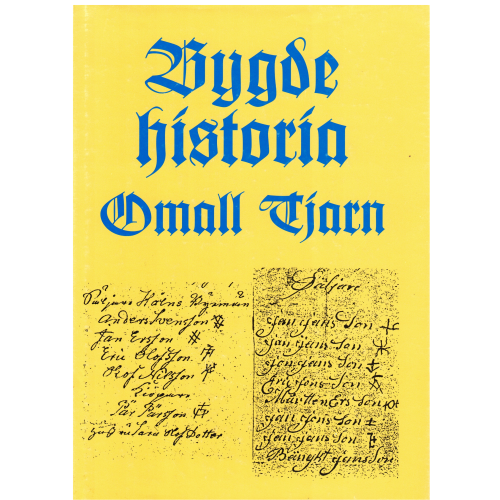 Bygde
historia
Omall Tjarn
Säljare Hålns Byamän
Anders Svensson
Jan Ersson
Eric Olofsson
Olof Nilsson
Köpare
Pär Pärsson
Olof Dotter
Säljare
Jan Jans Son
Jan Jans Son
Jon Jons Son
Eric Jons Son
Mårtten Ers Son
Jan Jons Son
Jan Jans Son
Bängkt Jonsson